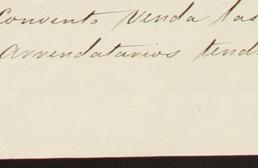 Convento venda las
arrendatarios tend